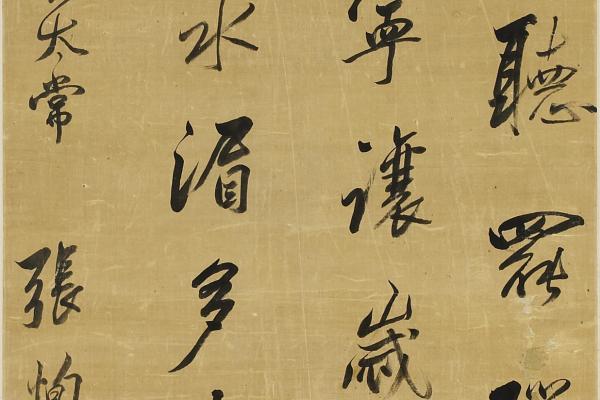 聽罷
寧讓歲
水湄多
太常張